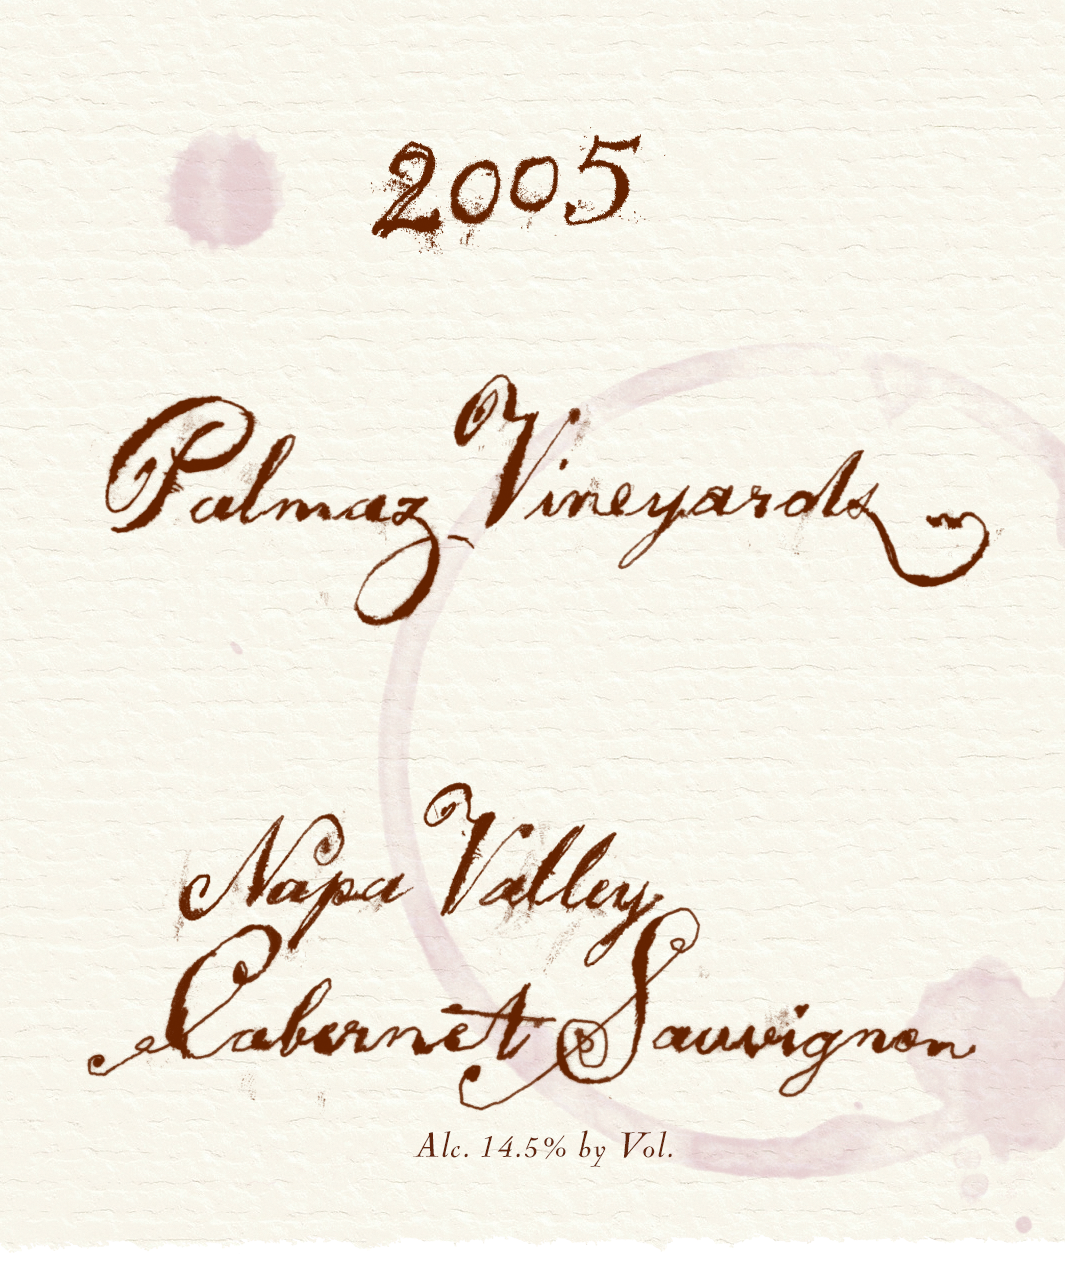 2005
Palmaz Vineyards
Napa Valley
Cabernet Sauvignon
Alc. 14.5% by Vol.